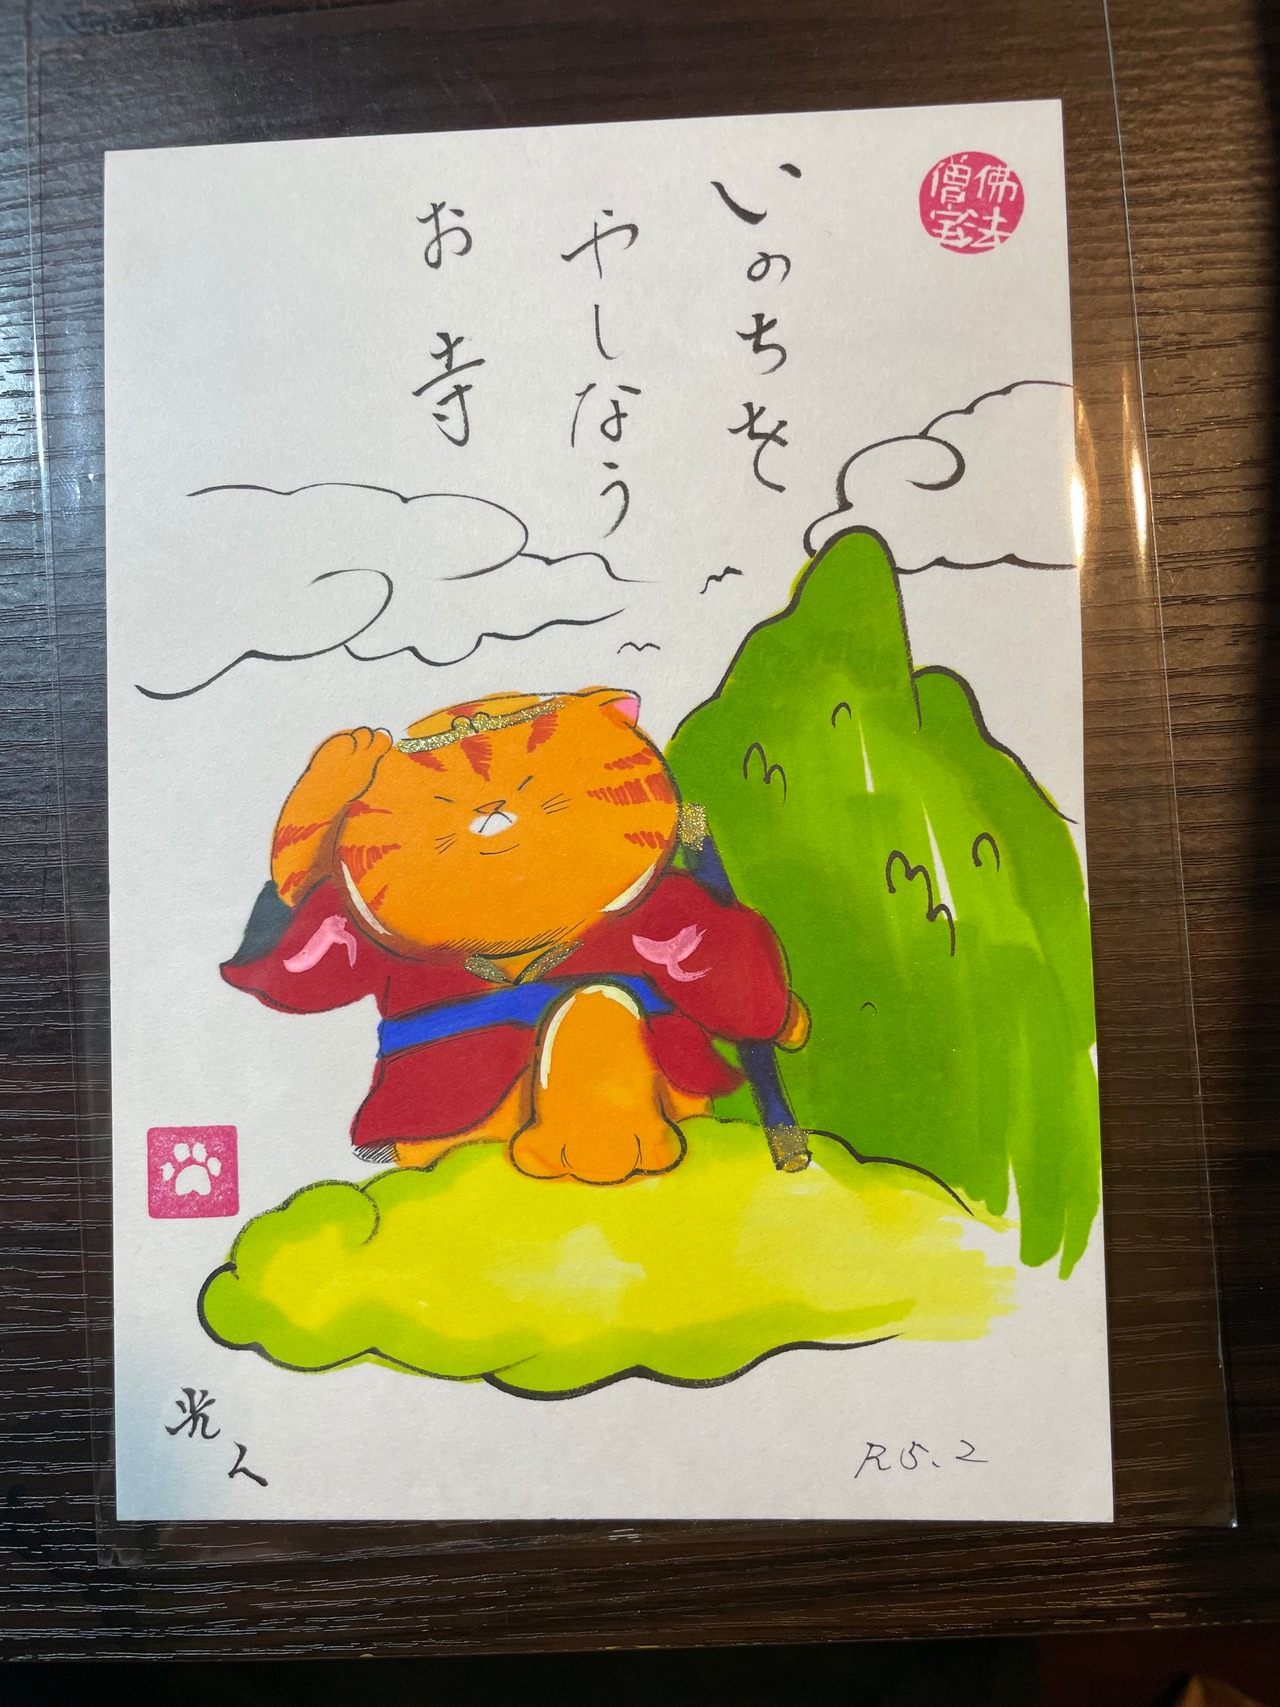 いのちを
やしなう
お寺
佛法
僧宝
光人
R5.2